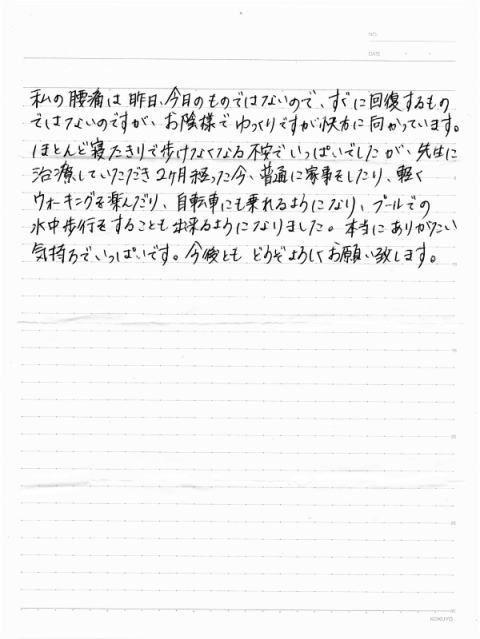 NO.
DATE
私の腰痛は昨日、今日のものではないので、すぐに回復するもの
ではないのですが、お陰様でゆっくりですが快方に向かっています。
ほとんど寝たきりで歩けなくなる不安でいっぱいでしたが、先生に
治療していただき2ヶ月経った今、普通に家事をしたり、軽く
ウォーキングを楽んだり、自転車にも乗れるようになり、プールでの
水中歩行をすることも出来るようになりました。本当にありがたい
気持ちでいっぱいです。今後とも どうぞよろしくお願い致します。
KOKUYO